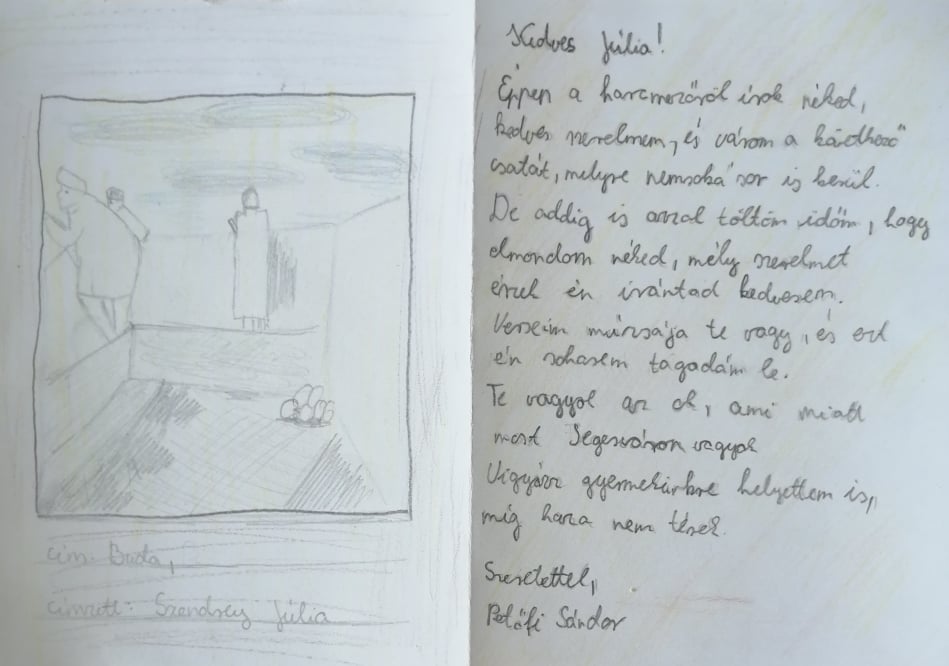 cím: Buda,
címzett: Szendrey Júlia
Kedves Júlia!
Éppen a harcmezőről írok néked,
kedves szerelmem, és várom a
csatát, melyre nemsoká sor is kerül.
De addig is azzal töltöm időm, hogy
elmondom néked, mély szerelmet
érzek én irántad kedvesem.
Verseim múzsája te vagy, és ezt
én sohasem tagadám le.
Te vagyol az ok, ami miatt
most Segesváron vagyok
Vigyázz gyermekünkre helyettem is,
míg haza nem térek.
Szeretettel,
Petőfi Sándor